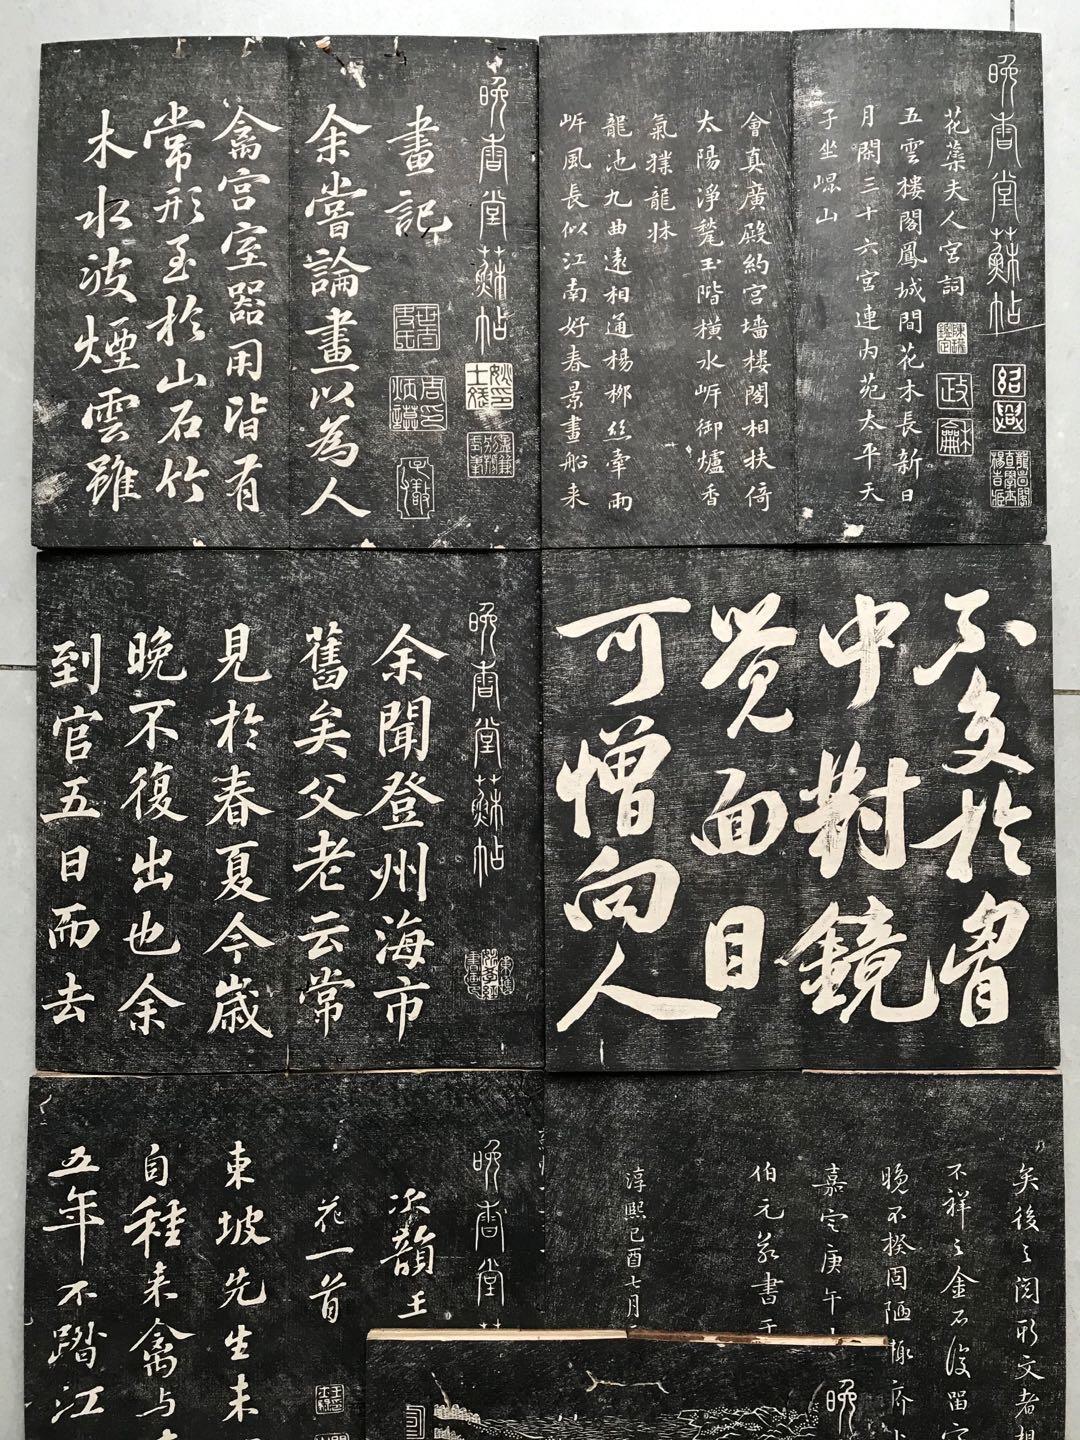 晚香堂蘇帖
花蕊夫人宮詞
五雲樓閣鳳城間花木長新日
月閑三十六宮連內苑太平天
子坐崐山
會真廣殿約宮墻樓閣相扶倚
太陽淨甃玉階橫水岍御爐香
氣撲龍牀
龍池九曲遠相通楊柳絲牽兩
岍風長似江南好春景畫船来
晚香堂蘇帖
畫記
余嘗論畫以為人
禽宮室器用皆有
常形至於山石竹
木水波煙雲雖
不文於胷
中對鏡
覺面目
可憎向人
晚香堂蘇帖
余聞登州海市
舊矣父老云常
見於春夏今歲
晚不復出也余
到官五日而去
矣後之閱斯文者想
不祥之金石後留
晚不揆固陋
嘉定庚午
伯元父書于
淳熙己酉七月
晚香堂
次韻王
花一首
東坡先生未
自種来禽与
五年不踏江
晚